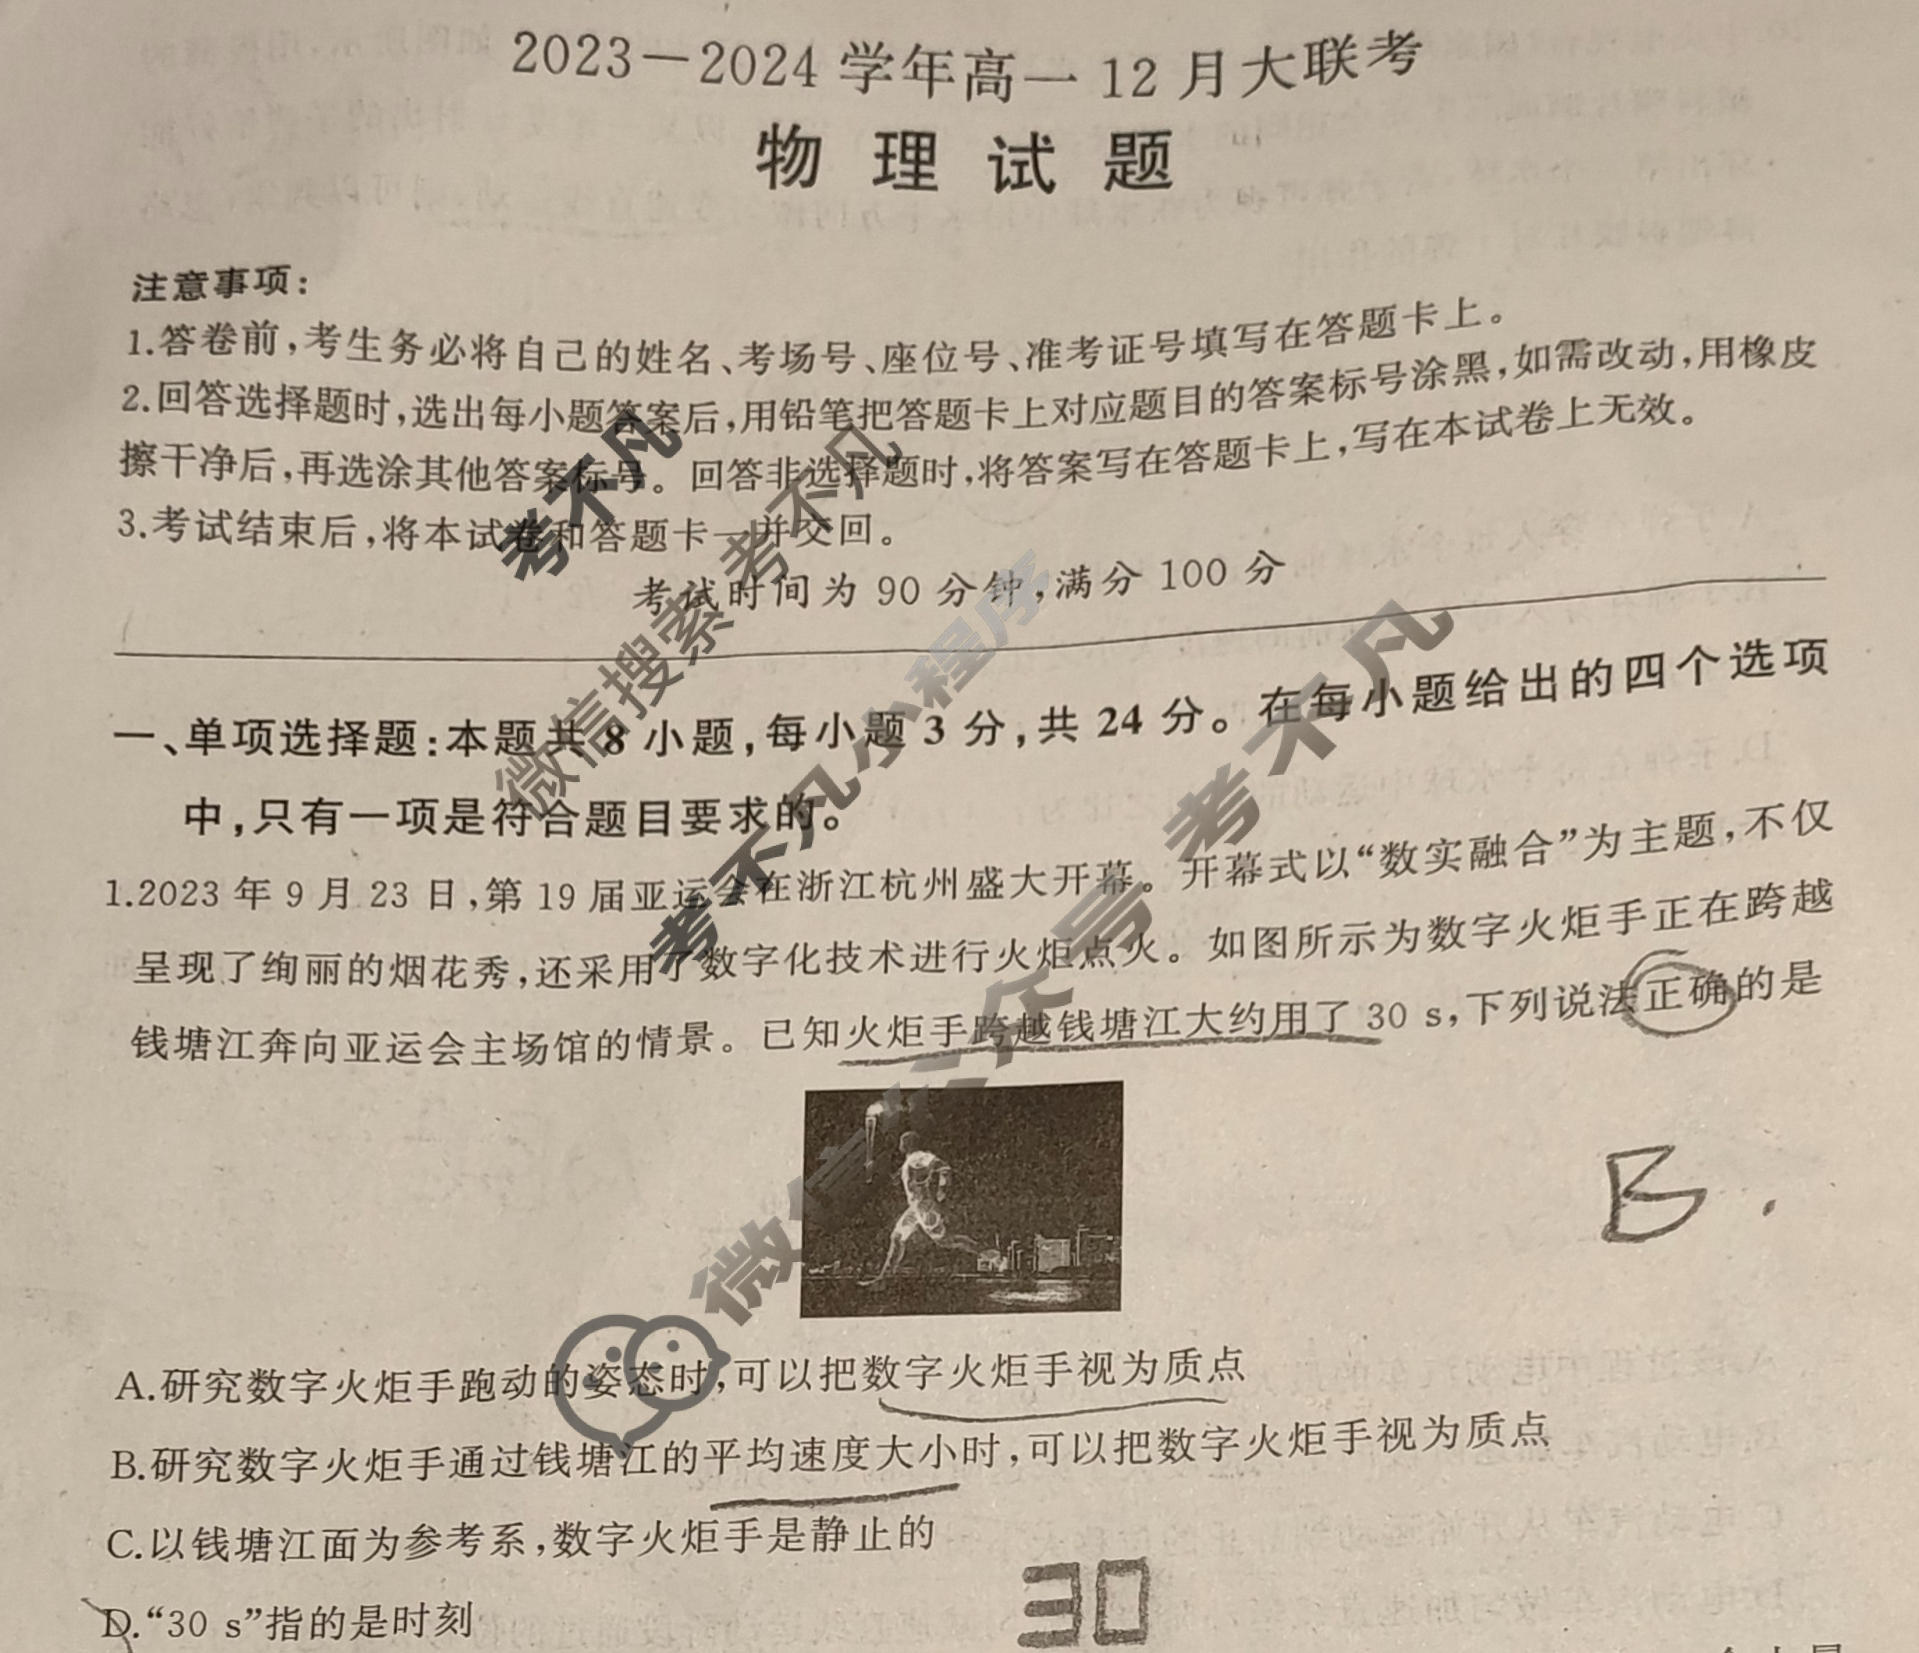 2023—2024学年高一12月大联考
物理试题
注意事项:
1.答卷前,考生务必将自己的姓名、考场号、座位号、准考证号填写在答题卡上。
2.回答选择题时,选出每小题答案后,用铅笔把答题卡上对应题目的答案标号涂黑,如需改动,用橡皮
擦干净后,再选涂其他答案标号。回答非选择题时,将答案写在答题卡上,写在本试卷上无效。
3.考试结束后,将本试卷和答题卡一并交回。
考试时间为90分钟,满分100分
一、单项选择题:本题共8小题,每小题3分,共24分。在每小题给出的四个选项
中,只有一项是符合题目要求的。
1.2023年9月23日,第19届亚运会在浙江杭州盛大开幕。开幕式以“数实融合”为主题,不仅
呈现了绚丽的烟花秀,还采用了数字化技术进行火炬点火。如图所示为数字火炬手正在跨越
钱塘江奔向亚运会主场馆的情景。已知火炬手跨越钱塘江大约用了30 s,下列说法正确的是
B.
A.研究数字火炬手跑动的姿态时,可以把数字火炬手视为质点
B.研究数字火炬手通过钱塘江的平均速度大小时,可以把数字火炬手视为质点
C.以钱塘江面为参考系,数字火炬手是静止的
D.“30 s”指的是时刻
30
考不凡
微信搜索 考不凡
考不凡小程序
微信公众号 考不凡